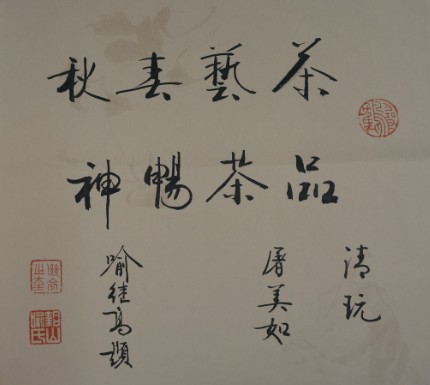 茶藝春秋
品茶暢神
清玩
屠美如
喻继高題